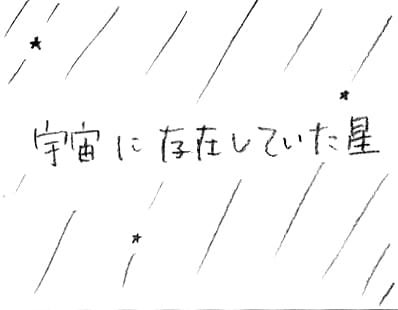 宇宙に存在していた星